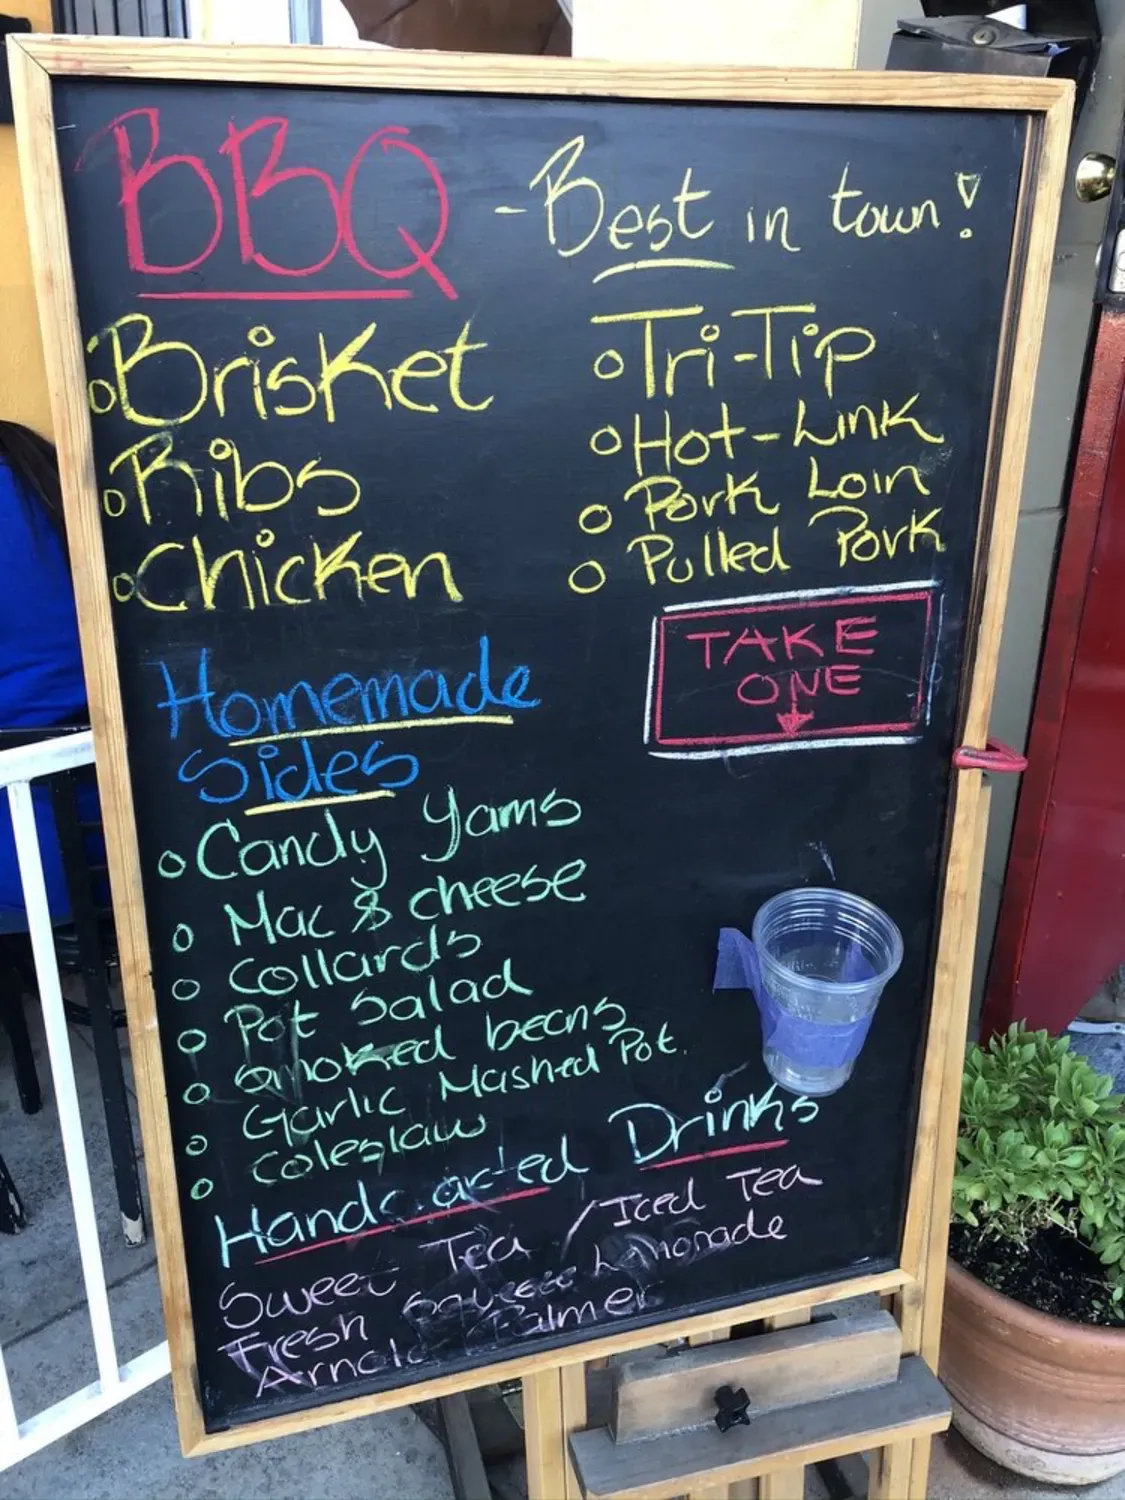 BBQ - Best in town!
Brisket
Ribs
Chicken
Tri-Tip
Hot-Link
Pork Loin
Pulled Pork
TAKE
ONE
Homemade
Sides
Candy Yams
Mac & cheese
Collards
Pot Salad
Smoked beans
Garlic Mashed Pot.
Coleslaw
Handcrafted Drinks
Sweet Tea / Iced Tea
Fresh Squeeze Lemonade
Arnold Palmer